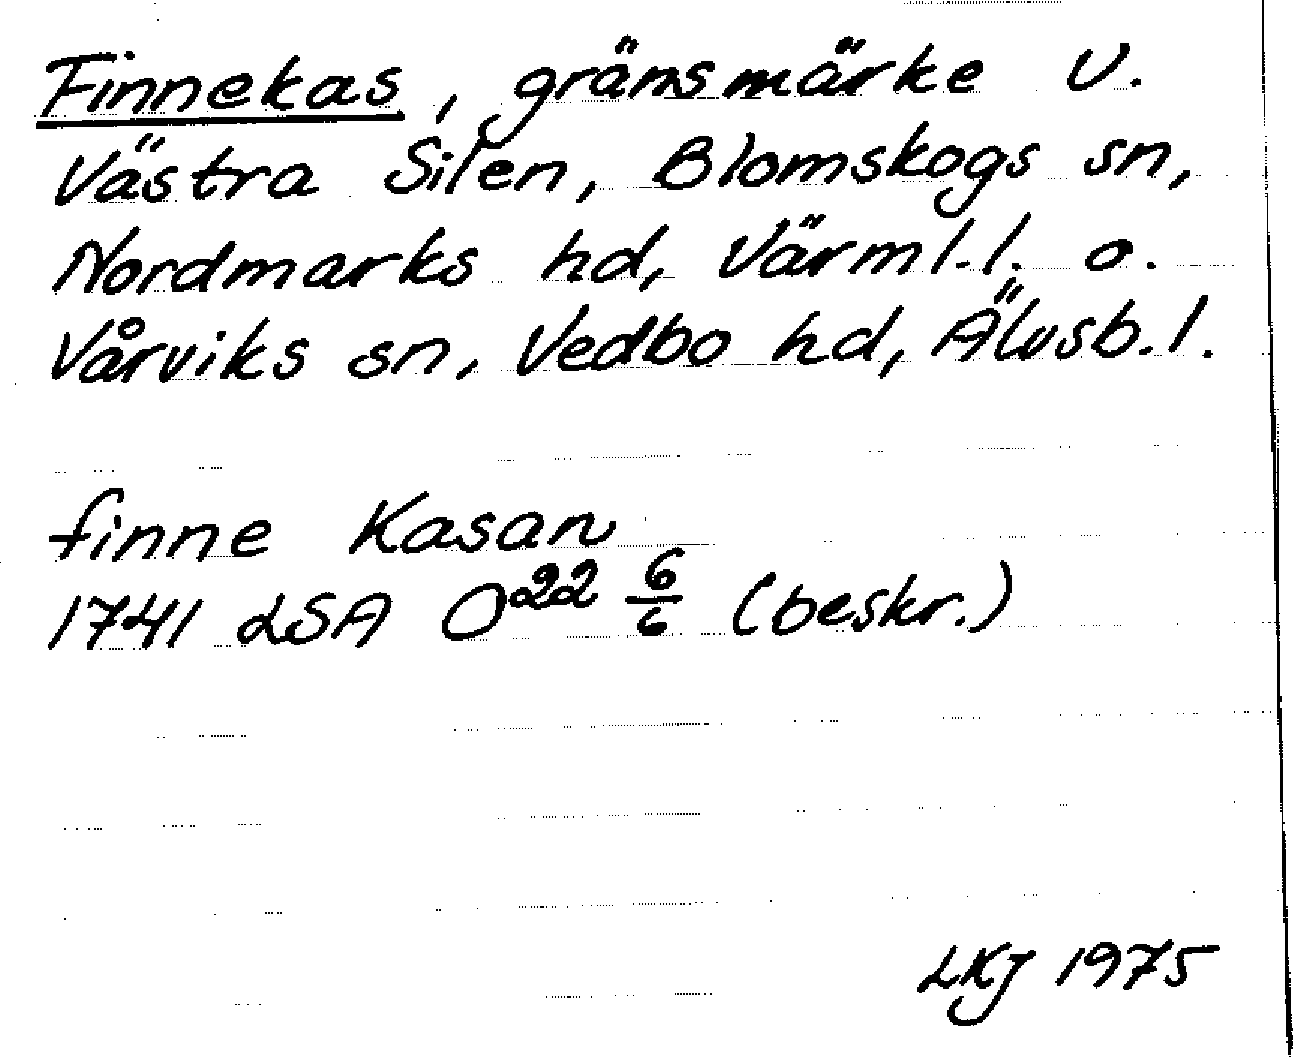 Finnekas, gränsmärke v.
Västra Silen, Blomskogs sn,
Nordmarks hd, Värml.l. o.
Vårviks sn, Vedbo hd, Älvsb.l.
finne Kasan
1741 LSA O22 6/6 (beskr.)
LKJ 1975